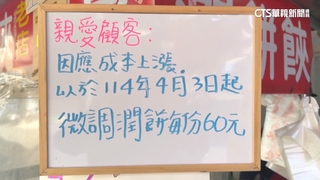 CTS華視新聞
親愛顧客:
因應成本上漲.
以於114年4月3日起
微調潤餅每份60元
餅餃
老店